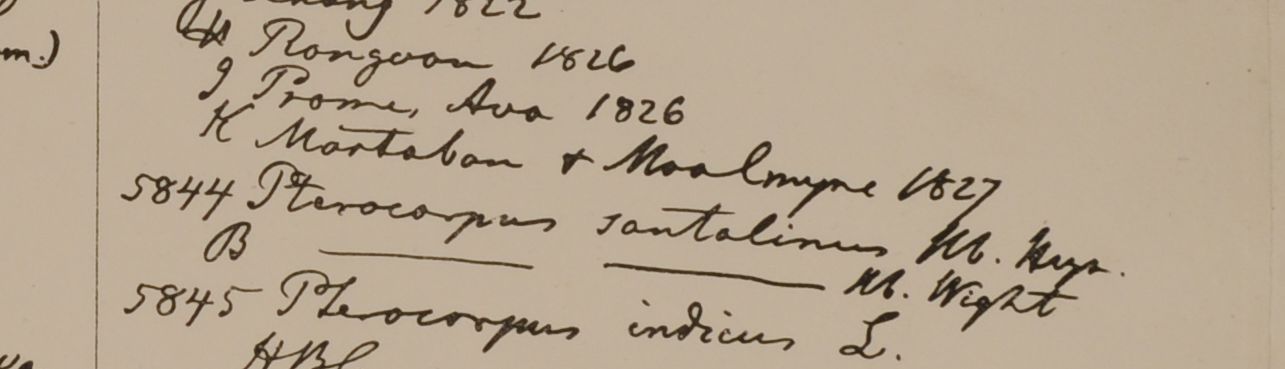 1822
m.)
H Rongoon 1826
J Prome, Ava 1826
K Martaban & Moalmyne 1827
5844 Pterocarpus santalinus Hb. Heyn.
B ——— ——— Hb. Wight
5845 Pterocarpus indicus L.
HBC